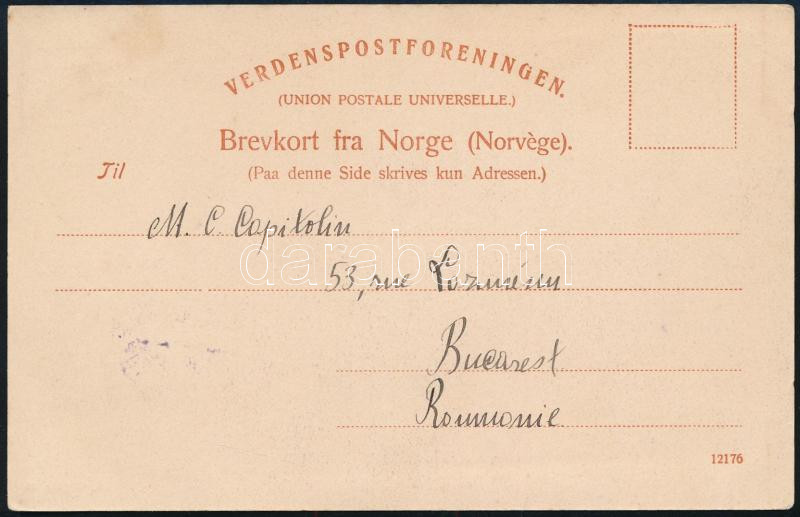 VERDENSPOSTFORENINGEN.
(UNION POSTALE UNIVERSELLE.)
Brevkort fra Norge (Norvège).
(Paa denne Side skrives kun Adressen.)
Til
M. C. Capitolin
darabanth
53, rue
Bucarest
Roumanie
12176